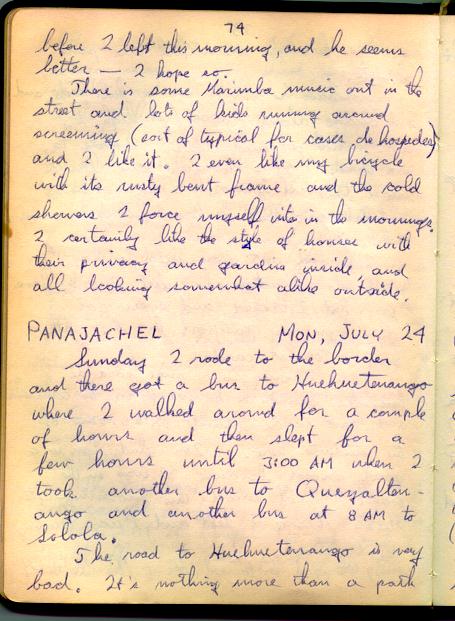 74
before I left this morning, and he seems
better — I hope so.
There is some Marimba music out in the
street and lots of kids running around
screaming (sort of typical for casas de hospedes)
and I like it. I even like my bicycle
with its rusty bent frame and the cold
showers I force myself into in the mornings.
I certainly like the style of houses with
their privacy and gardens inside, and
all looking somewhat alike outside.
PANAJACHEL MON, JULY 24
Sunday I rode to the border
and there got a bus to Huehuetenango
where I walked around for a couple
of hours and then slept for a
few hours until 3:00 AM when I
took another bus to Quezalten-
ango and another bus at 8 AM to
Solola.
The road to Huehuetenango is very
bad. It's nothing more than a path